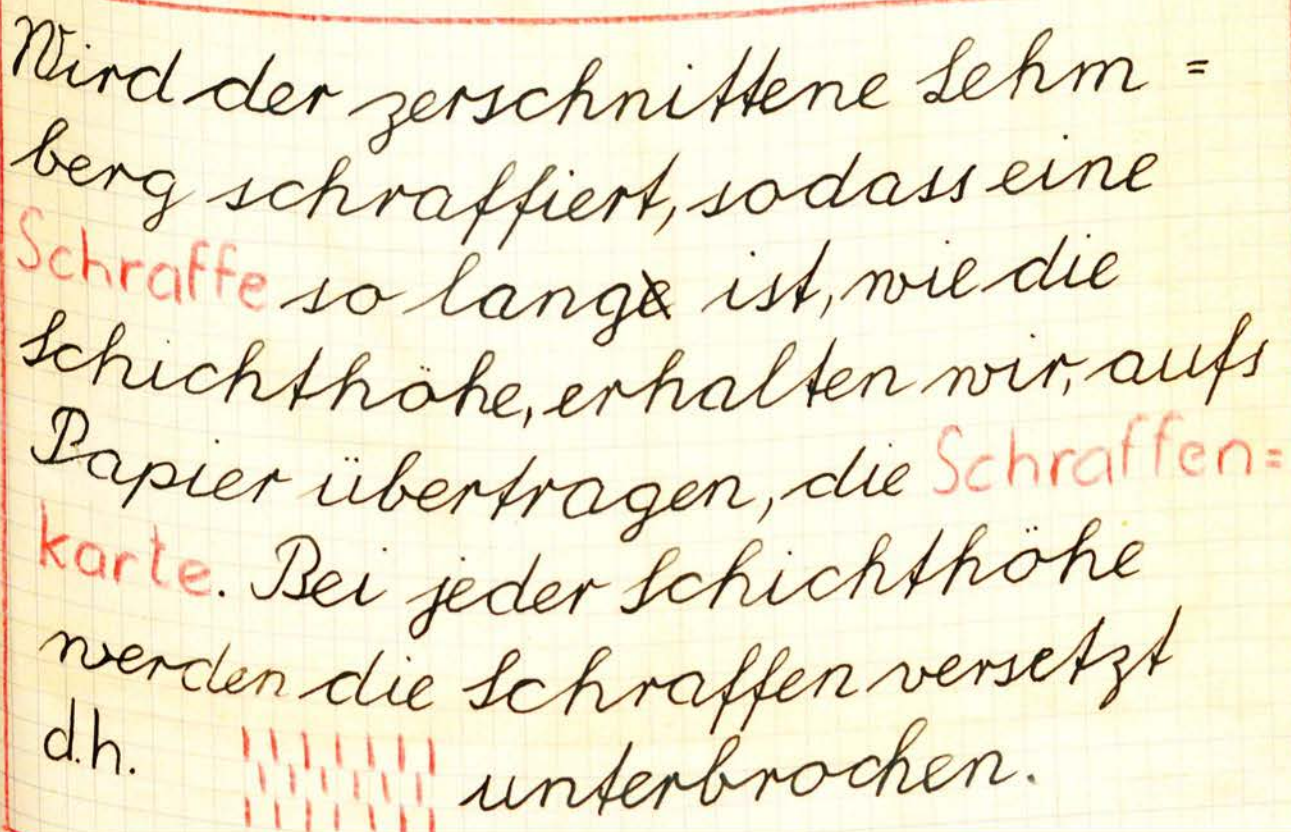 Wird der zerschnittene Lehm =
berg schraffiert, sodass eine
Schraffe so lang ist, wie die
Schichthöhe, erhalten wir, aufs
Papier übertragen, die Schraffen=
karte. Bei jeder Schichthöhe
werden die Schraffen versetzt
d.h. unterbrochen.